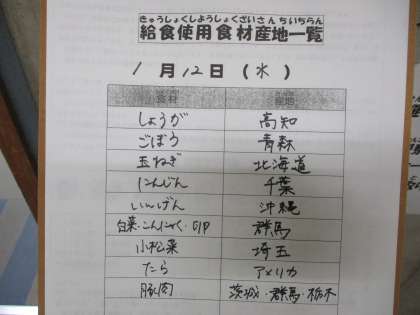 きゅうしょくしようしょくざいさんちいちらん
給食使用食材産地一覧
1月12日(水)
食材 産地
しょうが 高知
ごぼう 青森
玉ねぎ 北海道
にんじん 千葉
いんげん 沖縄
白菜・こんにゃく・ 群馬
小松菜 埼玉
たら アメリカ
豚肉 茨城・群馬・栃木